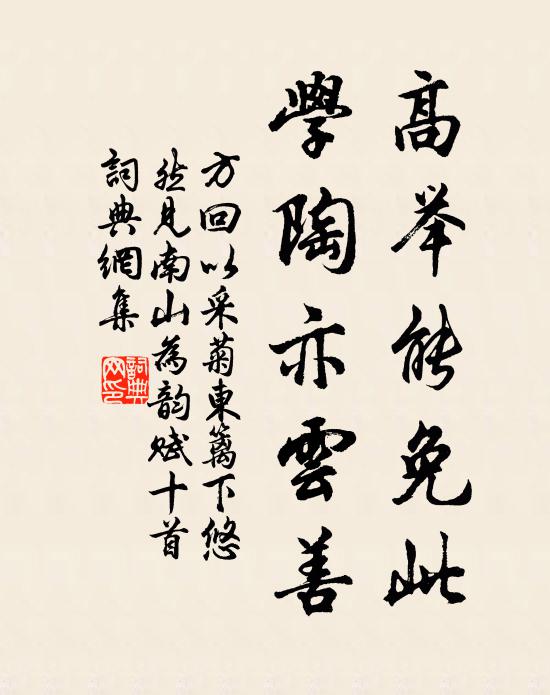 高举能免此
學陶亦雲善
方回以采菊東籬下悠
然見南山為韵赋十首
詞典網集
詞典
网印